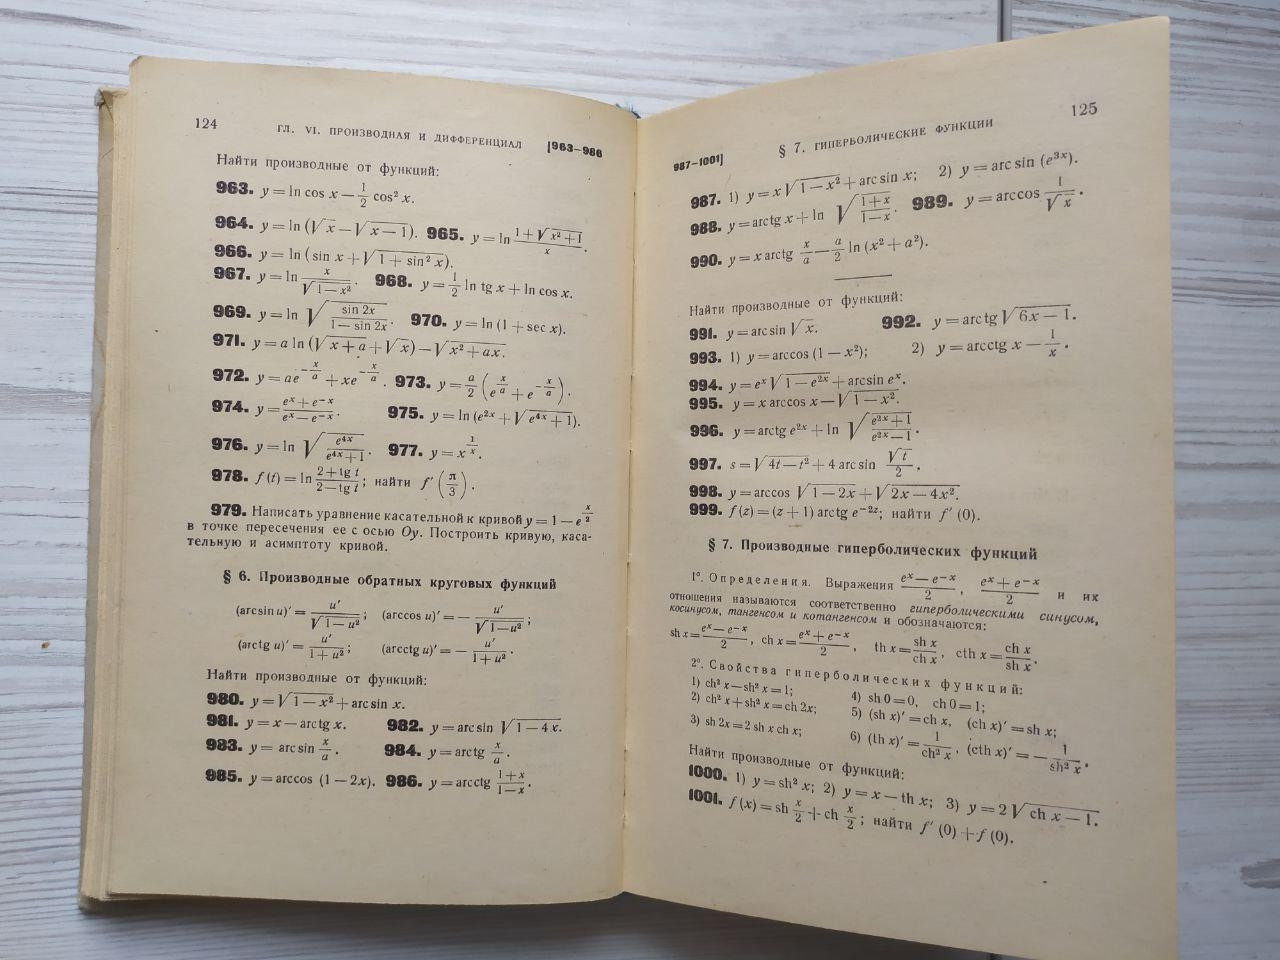 124 ГЛ. VI. ПРОИЗВОДНАЯ И ДИФФЕРЕНЦИАЛ [963–986
Найти производные от функций:
963. y = ln cos x − 1/2 cos² x.
964. y = ln (√x − √(x − 1)). 965. y = ln (1 + √(x² + 1))/x.
966. y = ln (sin x + √(1 + sin² x)).
967. y = ln x/√(1 − x²). 968. y = 1/2 ln tg x + ln cos x.
969. y = ln √(sin 2x/(1 − sin 2x)). 970. y = ln (1 + sec x).
971. y = a ln (√(x + a) + √x) − √(x² + ax).
972. y = ae^(−x/a) + xe^(−x/a). 973. y = a/2 (e^(x/a) + e^(−x/a)).
974. y = (eˣ + e⁻ˣ)/(eˣ − e⁻ˣ). 975. y = ln (e²ˣ + √(e⁴ˣ + 1)).
976. y = ln √(e⁴ˣ/(e⁴ˣ + 1)). 977. y = x^(1/x).
978. f (t) = ln (2 + tg t)/(2 − tg t); найти f′ (π/3).
979. Написать уравнение касательной к кривой y = 1 − e^(x/2)
в точке пересечения ее с осью Oy. Построить кривую, каса-
тельную и асимптоту кривой.
§ 6. Производные обратных круговых функций
(arcsin u)′ = u′/√(1 − u²); (arccos u)′ = − u′/√(1 − u²);
(arctg u)′ = u′/(1 + u²); (arcctg u)′ = − u′/(1 + u²).
Найти производные от функций:
980. y = √(1 − x²) + arc sin x.
981. y = x − arctg x. 982. y = arc sin √(1 − 4x).
983. y = arc sin x/a. 984. y = arctg x/a.
985. y = arccos (1 − 2x). 986. y = arcctg (1 + x)/(1 − x).
987–1001] § 7. ГИПЕРБОЛИЧЕСКИЕ ФУНКЦИИ 125
987. 1) y = x √(1 − x²) + arc sin x; 2) y = arc sin (e³ˣ).
988. y = arctg x + ln √((1 + x)/(1 − x)). 989. y = arccos 1/√x.
990. y = x arctg x/a − a/2 ln (x² + a²).
Найти производные от функций:
991. y = arc sin √x. 992. y = arc tg √(6x − 1).
993. 1) y = arccos (1 − x²); 2) y = arcctg x − 1/x.
994. y = eˣ √(1 − e²ˣ) + arcsin eˣ.
995. y = x arccos x − √(1 − x²).
996. y = arctg e²ˣ + ln √((e²ˣ + 1)/(e²ˣ − 1)).
997. s = √(4t − t²) + 4 arc sin √t/2.
998. y = arccos √(1 − 2x) + √(2x − 4x²).
999. f (z) = (z + 1) arctg e⁻²ᶻ; найти f′ (0).
§ 7. Производные гиперболических функций
1°. Определения. Выражения (eˣ − e⁻ˣ)/2, (eˣ + e⁻ˣ)/2 и их
отношения называются соответственно гиперболическими синусом,
косинусом, тангенсом и котангенсом и обозначаются:
sh x = (eˣ − e⁻ˣ)/2, ch x = (eˣ + e⁻ˣ)/2, th x = sh x/ch x, cth x = ch x/sh x.
2°. Свойства гиперболических функций:
1) ch² x − sh² x = 1; 4) sh 0 = 0, ch 0 = 1;
2) ch² x + sh² x = ch 2x; 5) (sh x)′ = ch x, (ch x)′ = sh x;
3) sh 2x = 2 sh x ch x; 6) (th x)′ = 1/ch² x, (cth x)′ = − 1/sh² x.
Найти производные от функций:
1000. 1) y = sh² x; 2) y = x − th x; 3) y = 2 √(ch x − 1).
1001. f (x) = sh x/2 + ch x/2; найти f′ (0) + f (0).